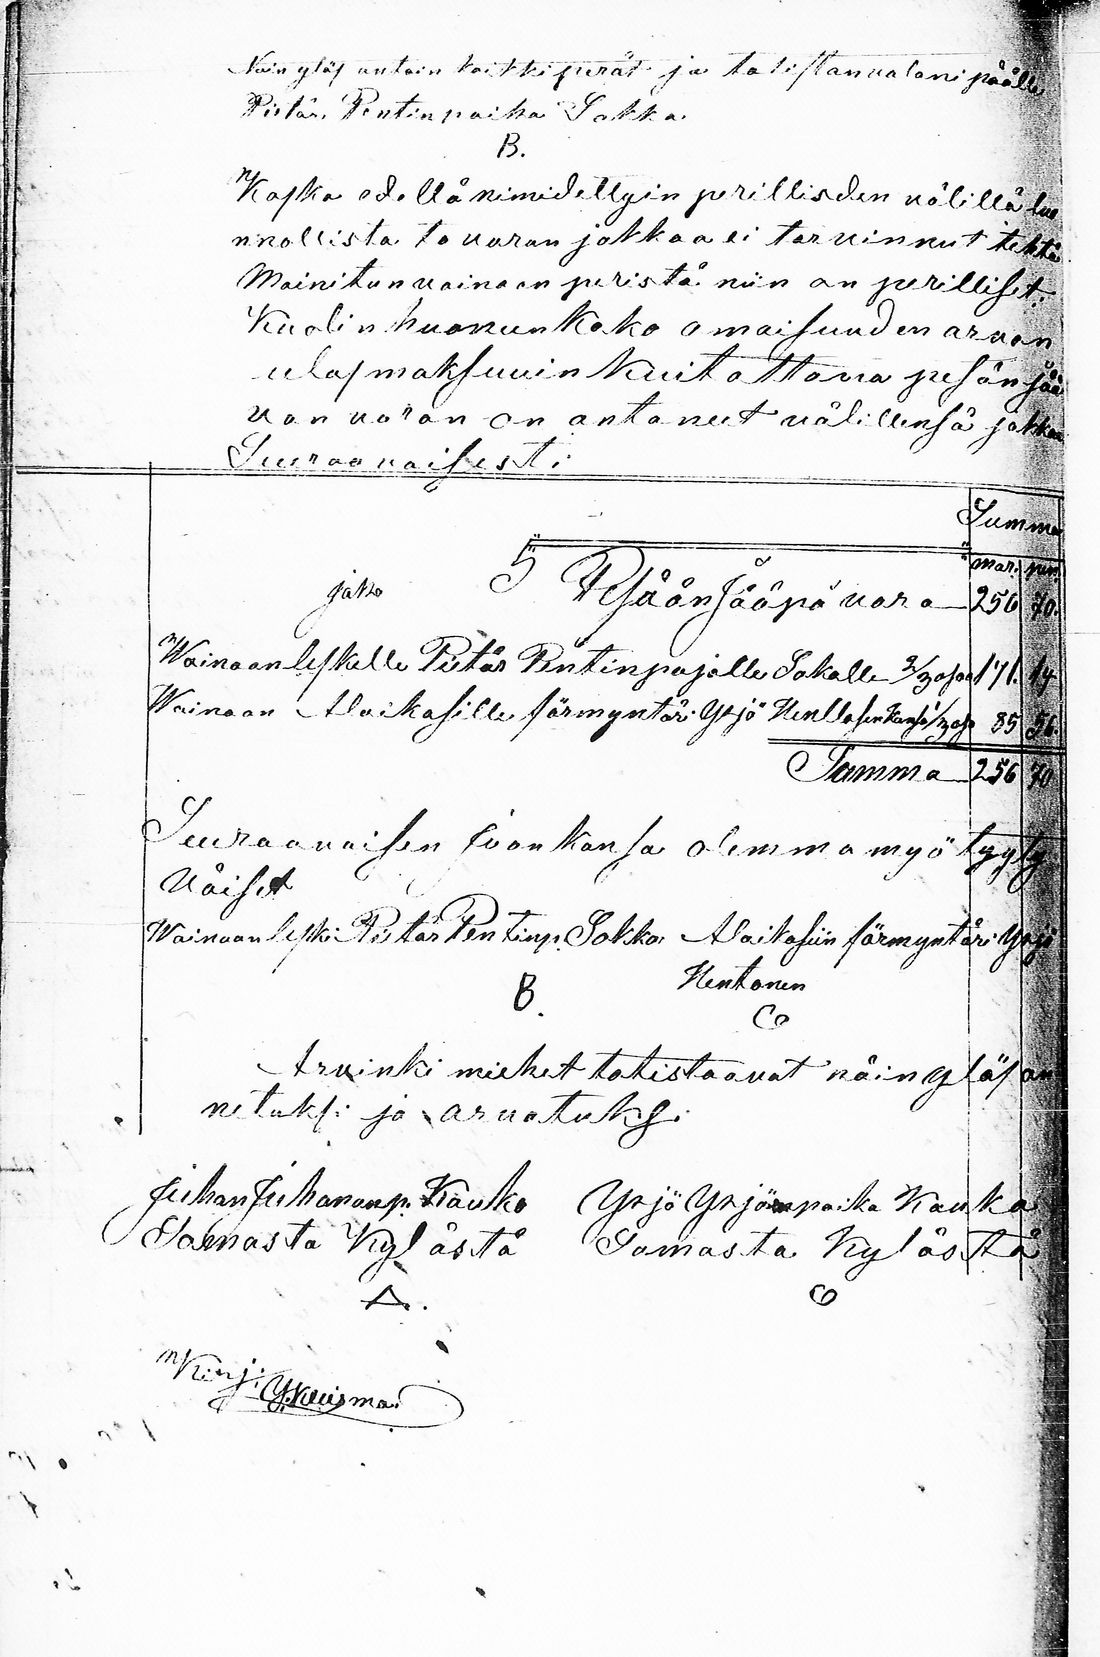 Näin yläs antain kaikki perät ja talistan valani päälle
Pietår Pentinpoika Sokka
B.
Koska edellå nimidettyin perillisden välillå luo
nnollista tavaran jakkaa ei tarvinnut tehtä
Mainitun vainaan peristå niin on perilliset
Kuolin huoneen koko omaisuuden arvon
ulosmaksuuin kuitattava pesån jää
van varan on antaneet välillensä jakkaa
Seuraavaisesti
Summa
mar. pen
jako 5 Pesåån Jååpå vara 256 70.
Wainaan leskelle Pietår Pentinpojalle Sokalle 2/3 osaa 171. 14
Wainaan Alaikasille förmyntåri Yrjö Henttosen kansa 1/3 osa 85 56.
Summa 256 70
Seuraavaisen Jvon kansa olemma myö tyyty
Väiset
Wainaan leski Pietår Pentinp. Sokka Alaikasiin förmyntåri Yrjö
Hentonen
B. C
Arvinki miehet totistaavat nåin ylås an
netuksi ja arvatuksi
Juhan Juhananp. Kauko Yrjö Yrjönpoika Kauko
Samasta Kylåstå Samasta Kylåstå
A. C
Kirj: Y. Kuisma